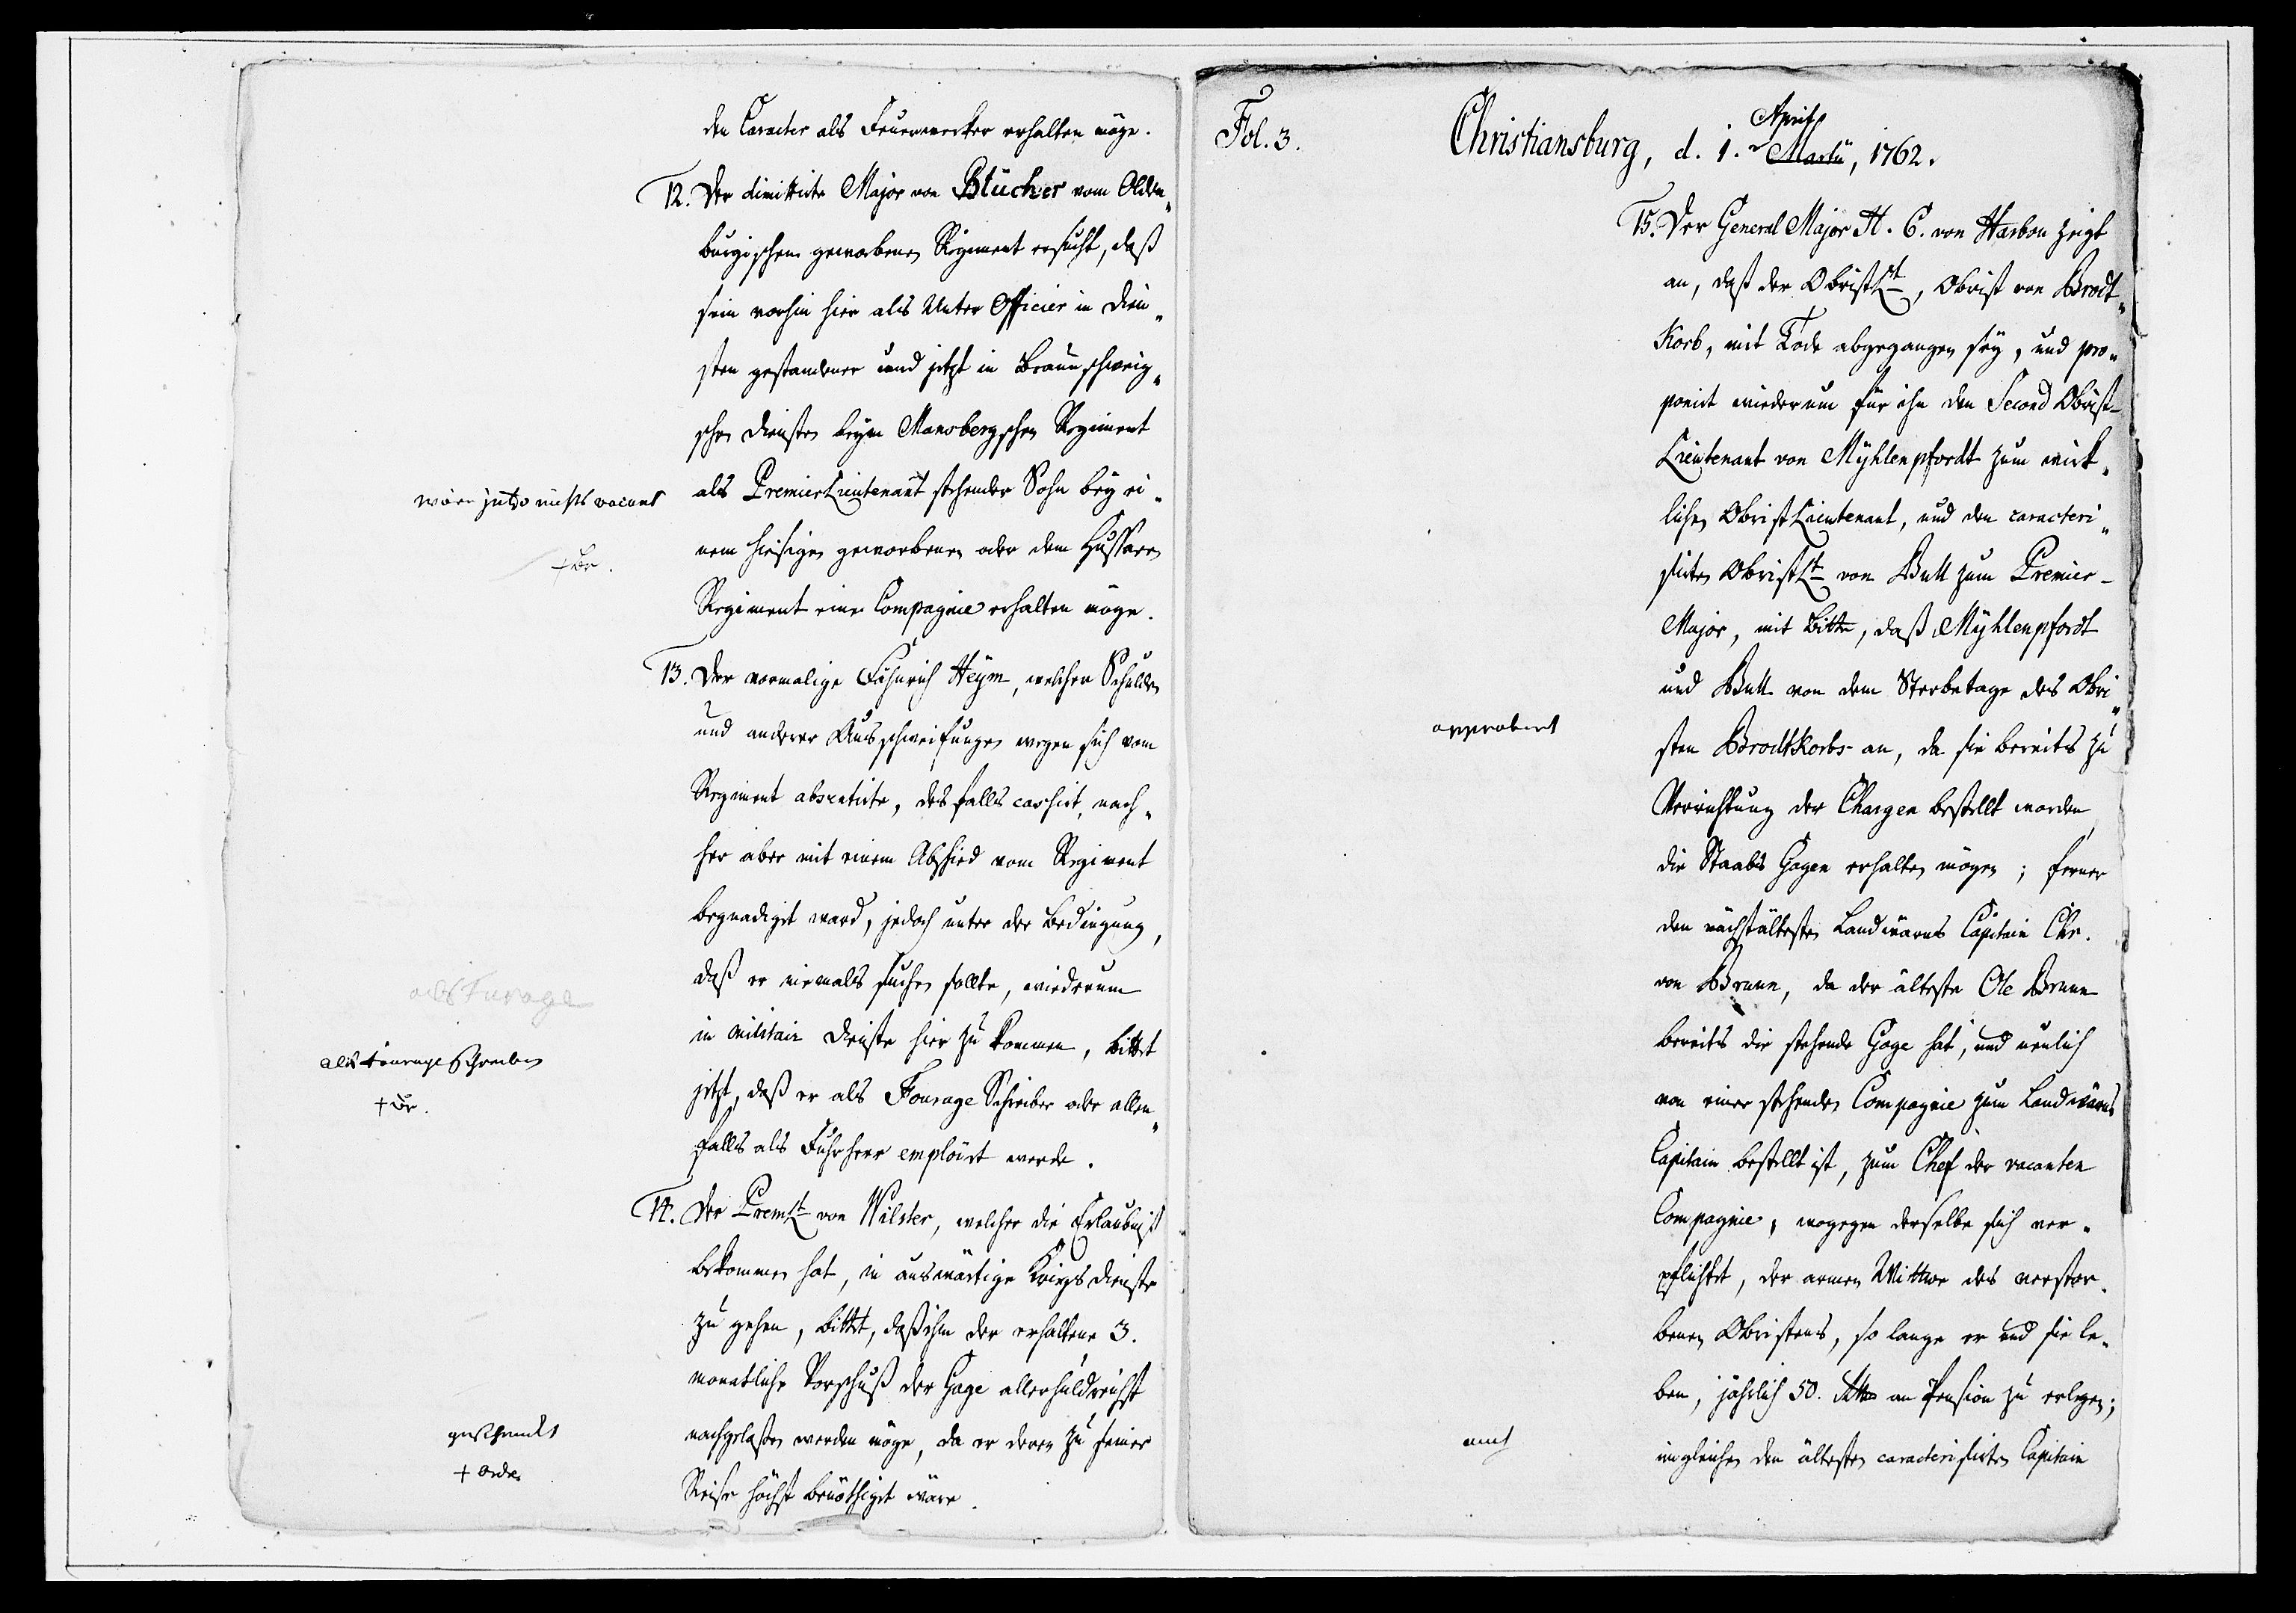 den Caracter als Feuerwerker erhalten möge.
12. Der dimittirte Major von Blücher vom Olden„
burgischen geworbenen Regiment ersucht, daß
sein vorhin hier als Unter Officier in Dien„
sten gestandener und jetzt in Braunschweig„
schen Diensten beym Mansbergschen Regiment
als PremierLieutenant stehender Sohn bey ei„
nem hiesigen geworbenen oder dem Husaren
Regiment eine Compagnie erhalten möge.
wäre jetzo nichts vacant
13. Der vormalige Fähnrich Heÿm, welcher Schulden
und anderer Ausschweifungen wegen sich vom
Regiment absentirte, desfalls cassirt, nach„
her aber mit einem Abschied vom Regiment
begnadigt ward, jedoch unter der Bedingung,
daß er niemals suchen sollte, wiederum
in militair Dienste hier zu kommen, bittet
jetzt, daß er als Fourage Schreiber oder allen„
falls als Fuhrherr emploirt werde.
als Fourage
als Fourage Schreiber
14. Der PremLt von Wilster, welcher die Erlaubniß
bekommen hat, in auswärtige Kriegsdienste
zu gehen, bittet, daß ihm der erhaltene 3.
monatliche Vorschuß der Gage allerhuldreichst
nachgelassen werden möge, da er deren zu seiner
Reise höchst benöthigt wäre.
geschenckt
+ Ordre
Fol. 3.
April
Christiansburg, d. 1. Martii, 1762.
15. Der General Major H. C. von Harbou zeigt
an, daß der ObristLt, Obrist von Brodt„
Korb, mit Tode abgegangen sey, und pro„
ponirt wiederum für ihn den Second Obrist-
Lieutenant von Mÿhlenpfordt zum wirk„
lichen ObristLieutenant, und den caracteri„
sirten ObristLt von Bull zum Premier-
Major, mit Bitte, daß Mÿhlenpfordt
und Bull von dem Sterbetage des Obri„
sten Brodtkorbs an, da sie bereits zu
Verrichtung der Chargen bestellt worden,
die Staabs Gagen erhalten mögen; ferner
den nächstältesten Landwärns Capitain Chr.
von Brunn, da der älteste Ole Brunn
bereits die stehende Gage hat, und neulich
von einer stehenden Compagnie zum Landwärns
Capitain bestellt ist, zum Chef der vacanten
Compagnie, wogegen derselbe sich ver„
pflichtet, der armen Wittwe des verstor„
benen Obristens, so lange er und sie le„
ben, jährlich 50. an Pension zu erlegen;
imgleichen den ältesten caracterisirten Capitain
approbirt
auch